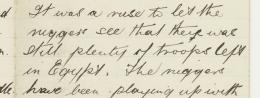 d It was a ruse to let the
n. niggers see that there was
still plenty of troops left
in Egypt. The niggers
have been playing up with